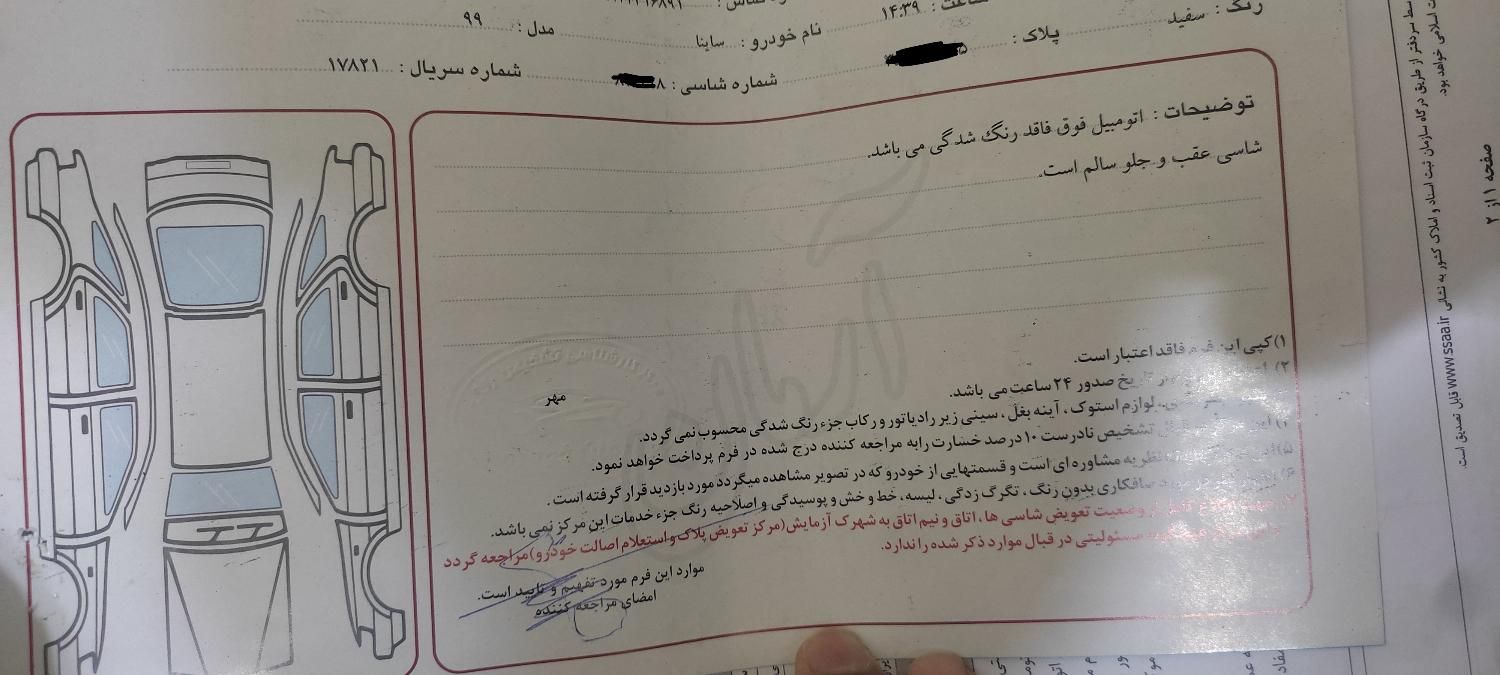 رنگ : سفید
ساعت : ۱۴:۳۹
پلاک :
نام خودرو : ساینا
مدل : ۹۹
شماره شاسی :
شماره سریال : ۱۷۸۲۱
توضیحات : اتومبیل فوق فاقد رنگ شدگی می باشد.
شاسی عقب و جلو سالم است.
مهر
۱)کپی این فرم فاقد اعتبار است.
تاریخ صدور ۲۴ ساعت می باشد.
لوازم استوک ، آینه بغل ، سینی زیر رادیاتور و رکاب جزء رنگ شدگی محسوب نمی گردد.
تشخیص نادرست ۱۰ درصد خسارت رابه مراجعه کننده درج شده در فرم پرداخت خواهد نمود.
نظریه مشاوره ای است و قسمتهایی از خودرو که در تصویر مشاهده میگردد مورد بازدید قرار گرفته است .
صافکاری بدون رنگ ، تگرگ زدگی ، لیسه، خط و خش و پوسیدگی و اصلاحیه رنگ جزء خدمات این مرکز نمی باشد.
وضعیت تعویض شاسی ها ، اتاق و نیم اتاق به شهرک آزمایش(مرکز تعویض پلاک و استعلام اصالت خودرو)مراجعه گردد
مسئولیتی در قبال موارد ذکر شده را ندارد.
موارد این فرم مورد تفهیم و تایید است.
امضای مراجعه کننده
صفحه ۱ از ۲
سردفتر از طریق درگاه سازمان ثبت اسناد و املاک کشور به نشانی www.ssaa.ir قابل تصدیق است
اسلامی خواهد بود.